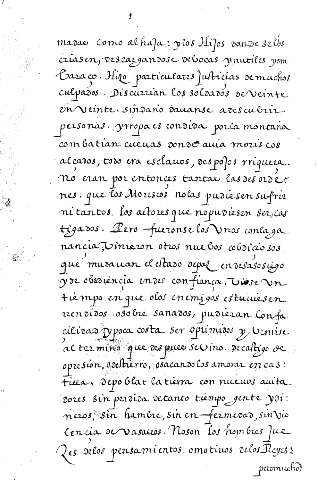 madas como alhaja: y los Hijos donde se los
criasen, descargandose de vocas ynutiles y em
baraço. Hizo particulares Justicias de muchos
culpados. Discurrian los soldados de veinte
en veinte. sin daño davanse a descubrir
personas. y rropa escondida por la montaña
combatian cuevas donde avia moriscos
alçados, todo era esclavos, despojos y riqueza.
No eran por entonces tantas las desorde-
nes. que los Moriscos no las pudiesen sufrir
ni tantos. los actores que no pudiesen ser cas
tigados. Pero fueronse los Unos con la ga
nancia, Vinieron otros nuevos cobdiciosos
que mudavan el estado de paz en desasosiego
y de obediencia en des confiança, Viose un
tiempo en que o los enemigos estuviesen
rendidos o sobre sanados, pudieran con fa
cilidad y poca costa ser oprimidos y Venirse
al termino que despues se vino. de castigo de
opresion, o destierro, o sacandolos a morar en cas
tilla, depoblar la tierra con nuevos avita
dores sin perdida de tanto tiempo gente y di-
neros, sin hambre, sin enfermedad, sin vio
lencia de vasallos. No son los hombres Jue
Zes de los pensamientos. o motivos de los Reyes
pero mucho